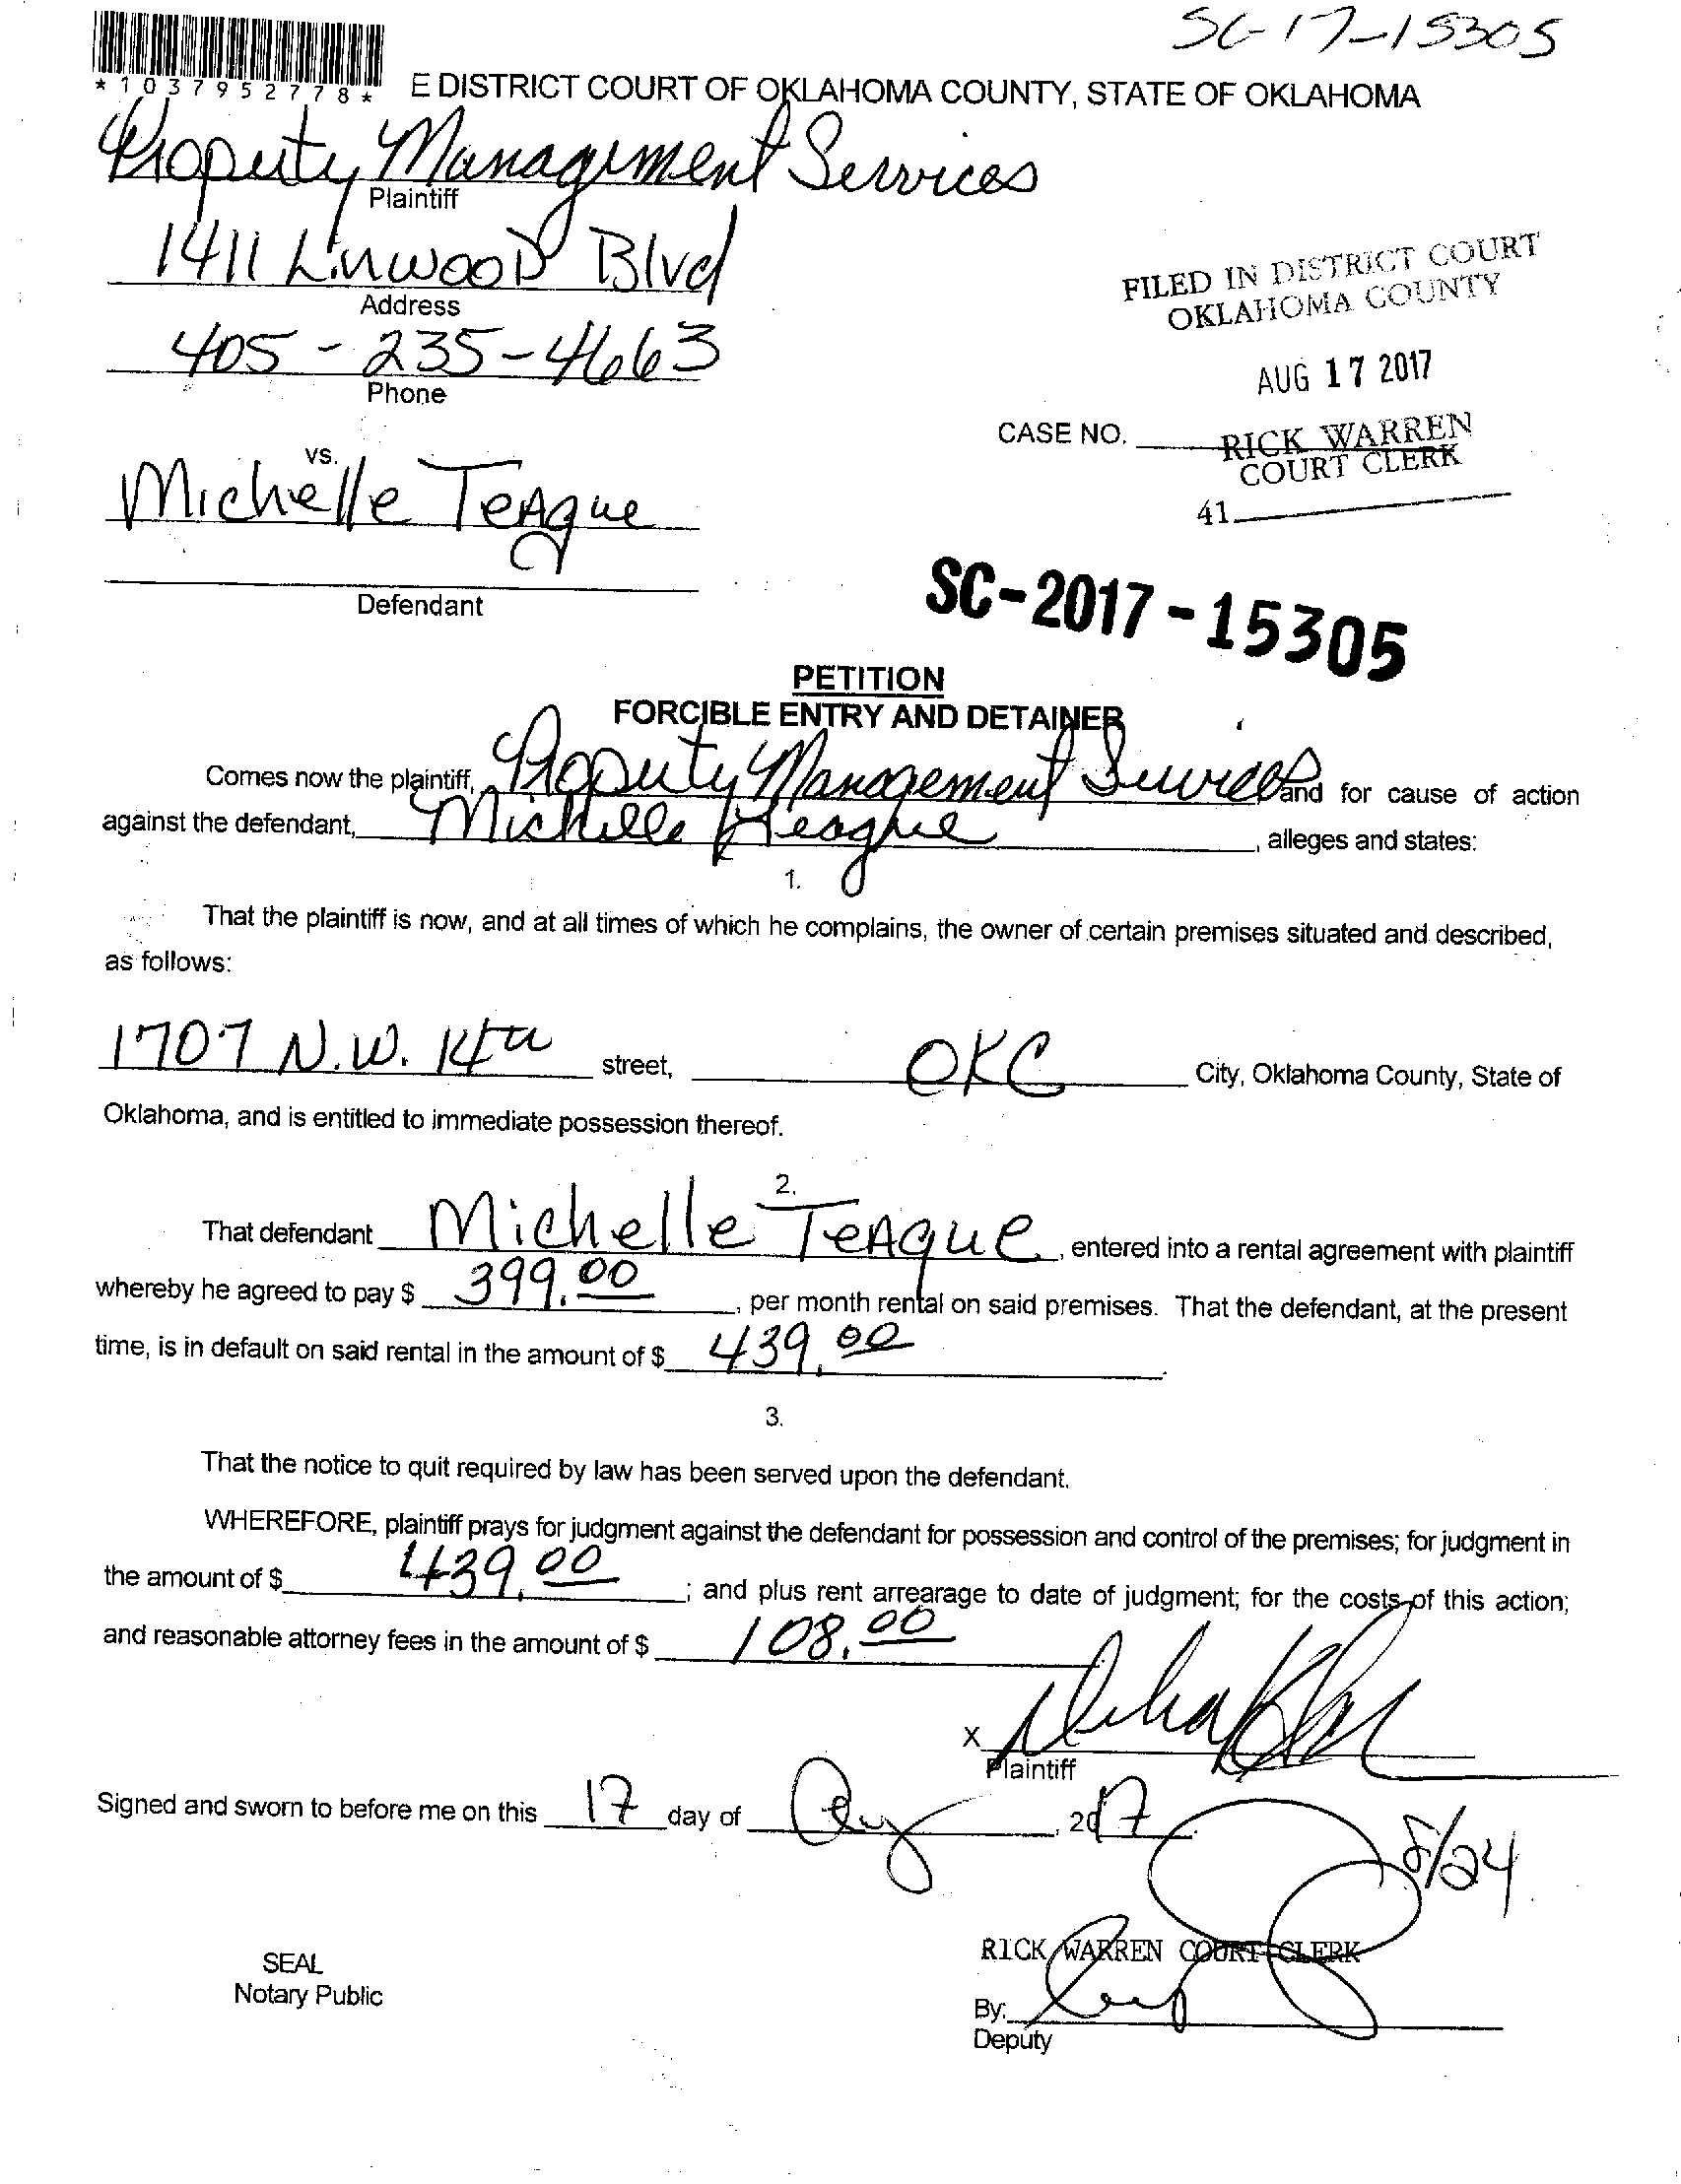 SC-17-15305
*1037952778*
E DISTRICT COURT OF OKLAHOMA COUNTY, STATE OF OKLAHOMA
Property Management Services
Plaintiff
1411 Linwood Blvd
Address
FILED IN DISTRICT COURT
OKLAHOMA COUNTY
405-235-4663
Phone
AUG 17 2017
CASE NO.
RICK WARREN
COURT CLERK
41
vs.
Michelle Teague
Defendant
SC-2017-15305
PETITION
FORCIBLE ENTRY AND DETAINER
Comes now the plaintiff, Property Management Services and for cause of action
against the defendant, Michelle Teague, alleges and states:
1.
That the plaintiff is now, and at all times of which he complains, the owner of certain premises situated and described,
as follows:
1707 N.W. 14th street, OKC City, Oklahoma County, State of
Oklahoma, and is entitled to immediate possession thereof.
2.
That defendant Michelle Teague, entered into a rental agreement with plaintiff
whereby he agreed to pay $ 399.00, per month rental on said premises. That the defendant, at the present
time, is in default on said rental in the amount of $ 439.00.
3.
That the notice to quit required by law has been served upon the defendant.
WHEREFORE, plaintiff prays for judgment against the defendant for possession and control of the premises; for judgment in
the amount of $ 439.00; and plus rent arrearage to date of judgment; for the costs of this action;
and reasonable attorney fees in the amount of $ 108.00
X
Plaintiff
Signed and sworn to before me on this 17 day of Aug, 2017
8/24
RICK WARREN COURT CLERK
SEAL
Notary Public
By:
Deputy